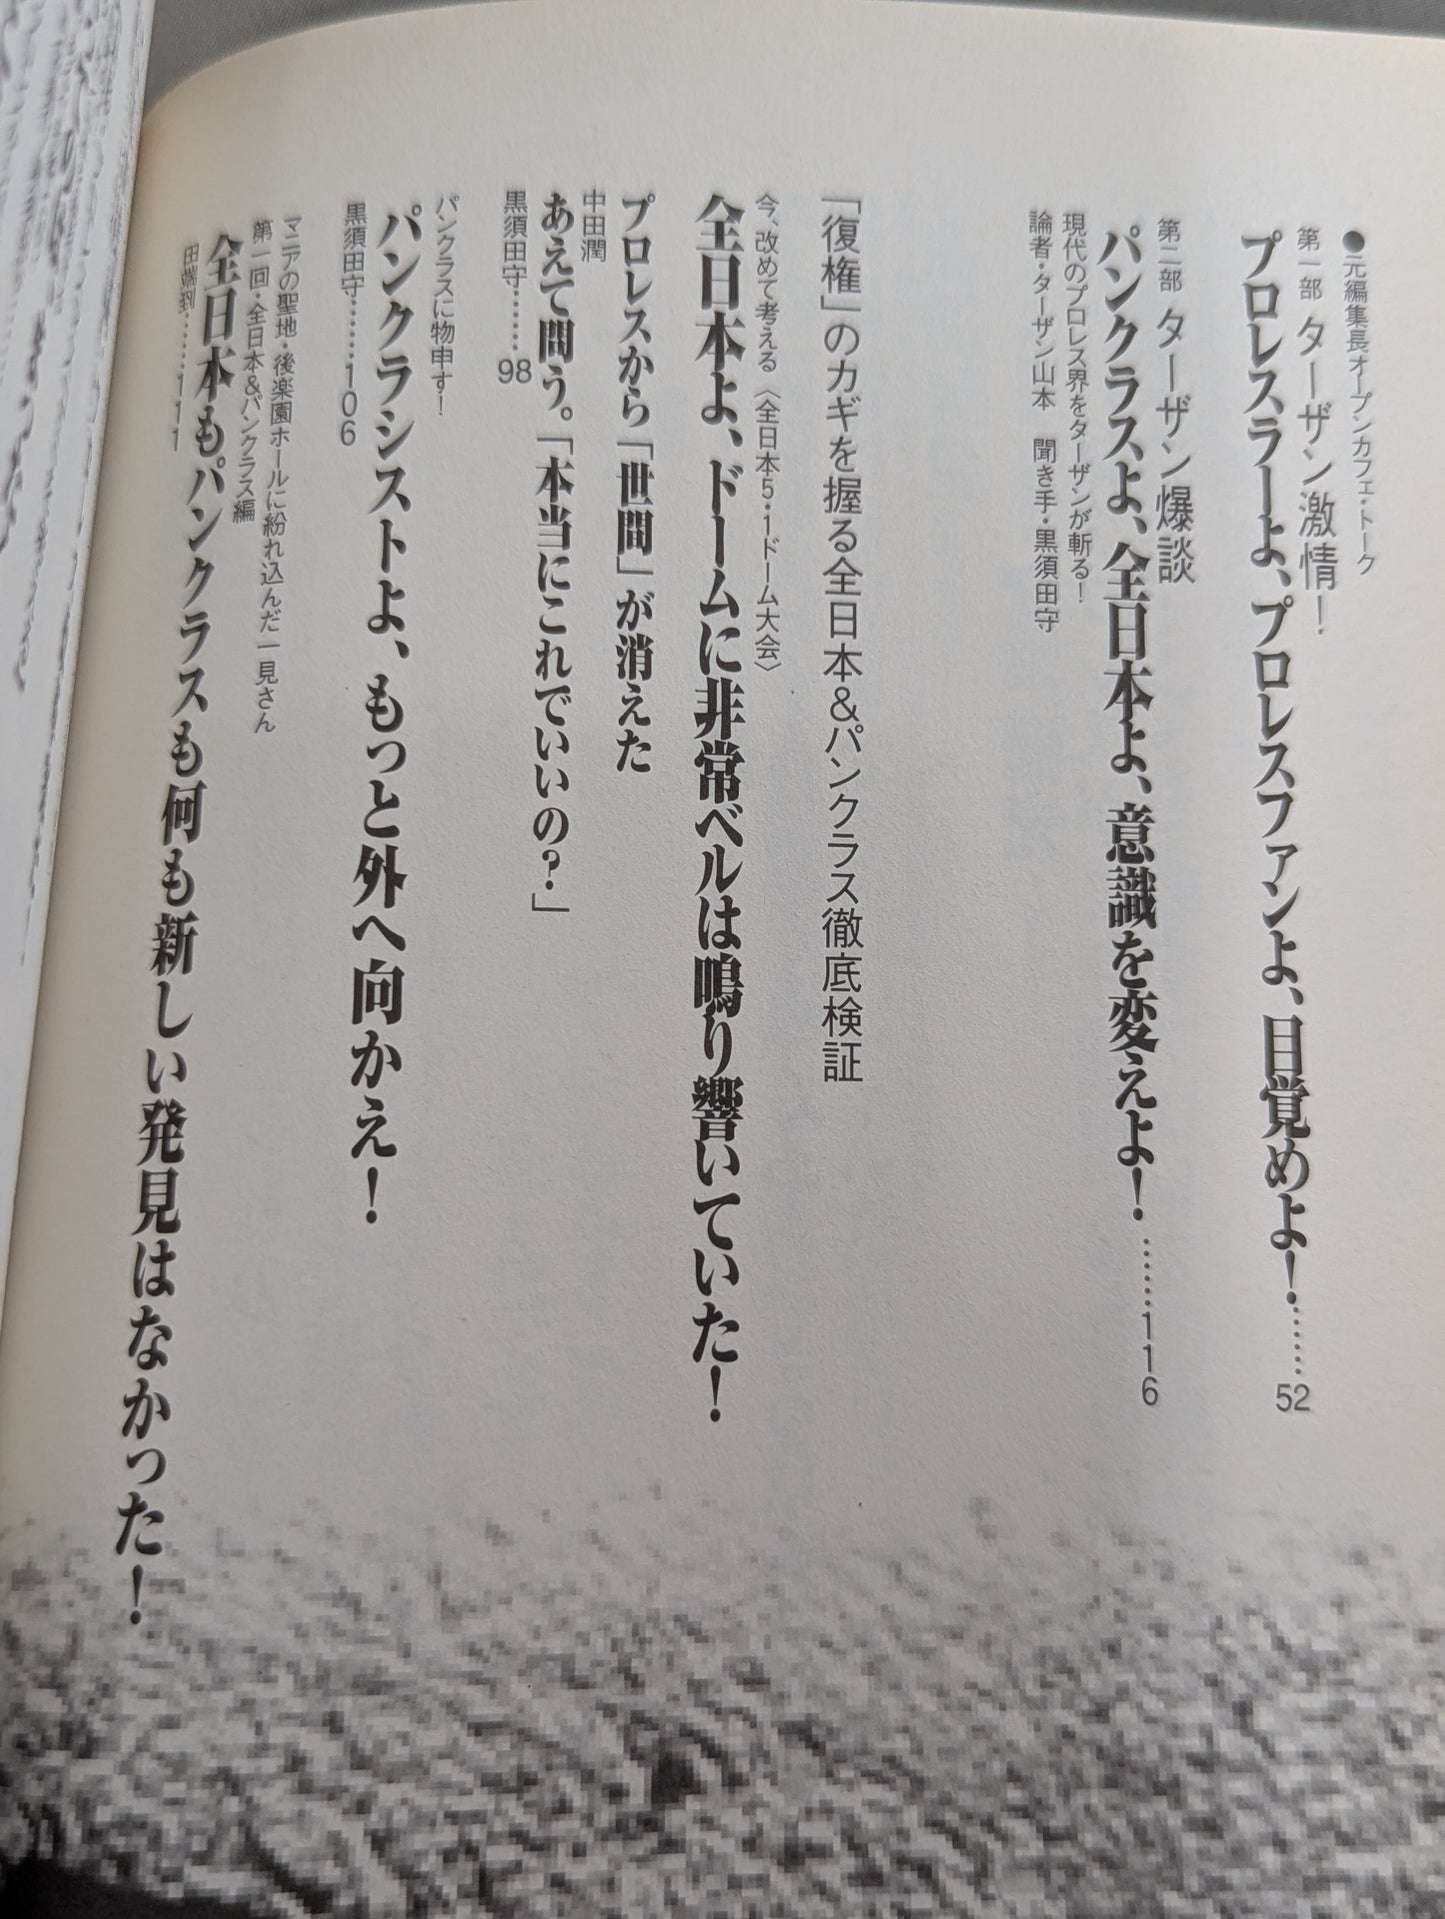 ●元編集長オープンカフェ・トーク
第一部 ターザン激情！
プロレスラーよ、プロレスファンよ、目覚めよ！……52
第二部 ターザン爆談
パンクラスよ、全日本よ、意識を変えよ！……116
現代のプロレス界をターザンが斬る！
論者・ターザン山本　聞き手・黒須田守
「復権」のカギを握る全日本&パンクラス徹底検証
今、改めて考える〈全日本5・1ドーム大会〉
全日本よ、ドームに非常ベルは鳴り響いていた！
プロレスから「世間」が消えた
中田潤
あえて問う。「本当にこれでいいの？」
黒須田守……98
パンクラスに物申す！
パンクラシストよ、もっと外へ向かえ！
黒須田守……106
マニアの聖地・後楽園ホールに紛れ込んだ一見さん
第一回・全日本&パンクラス編
全日本もパンクラスも何も新しい発見はなかった！
田端到……111